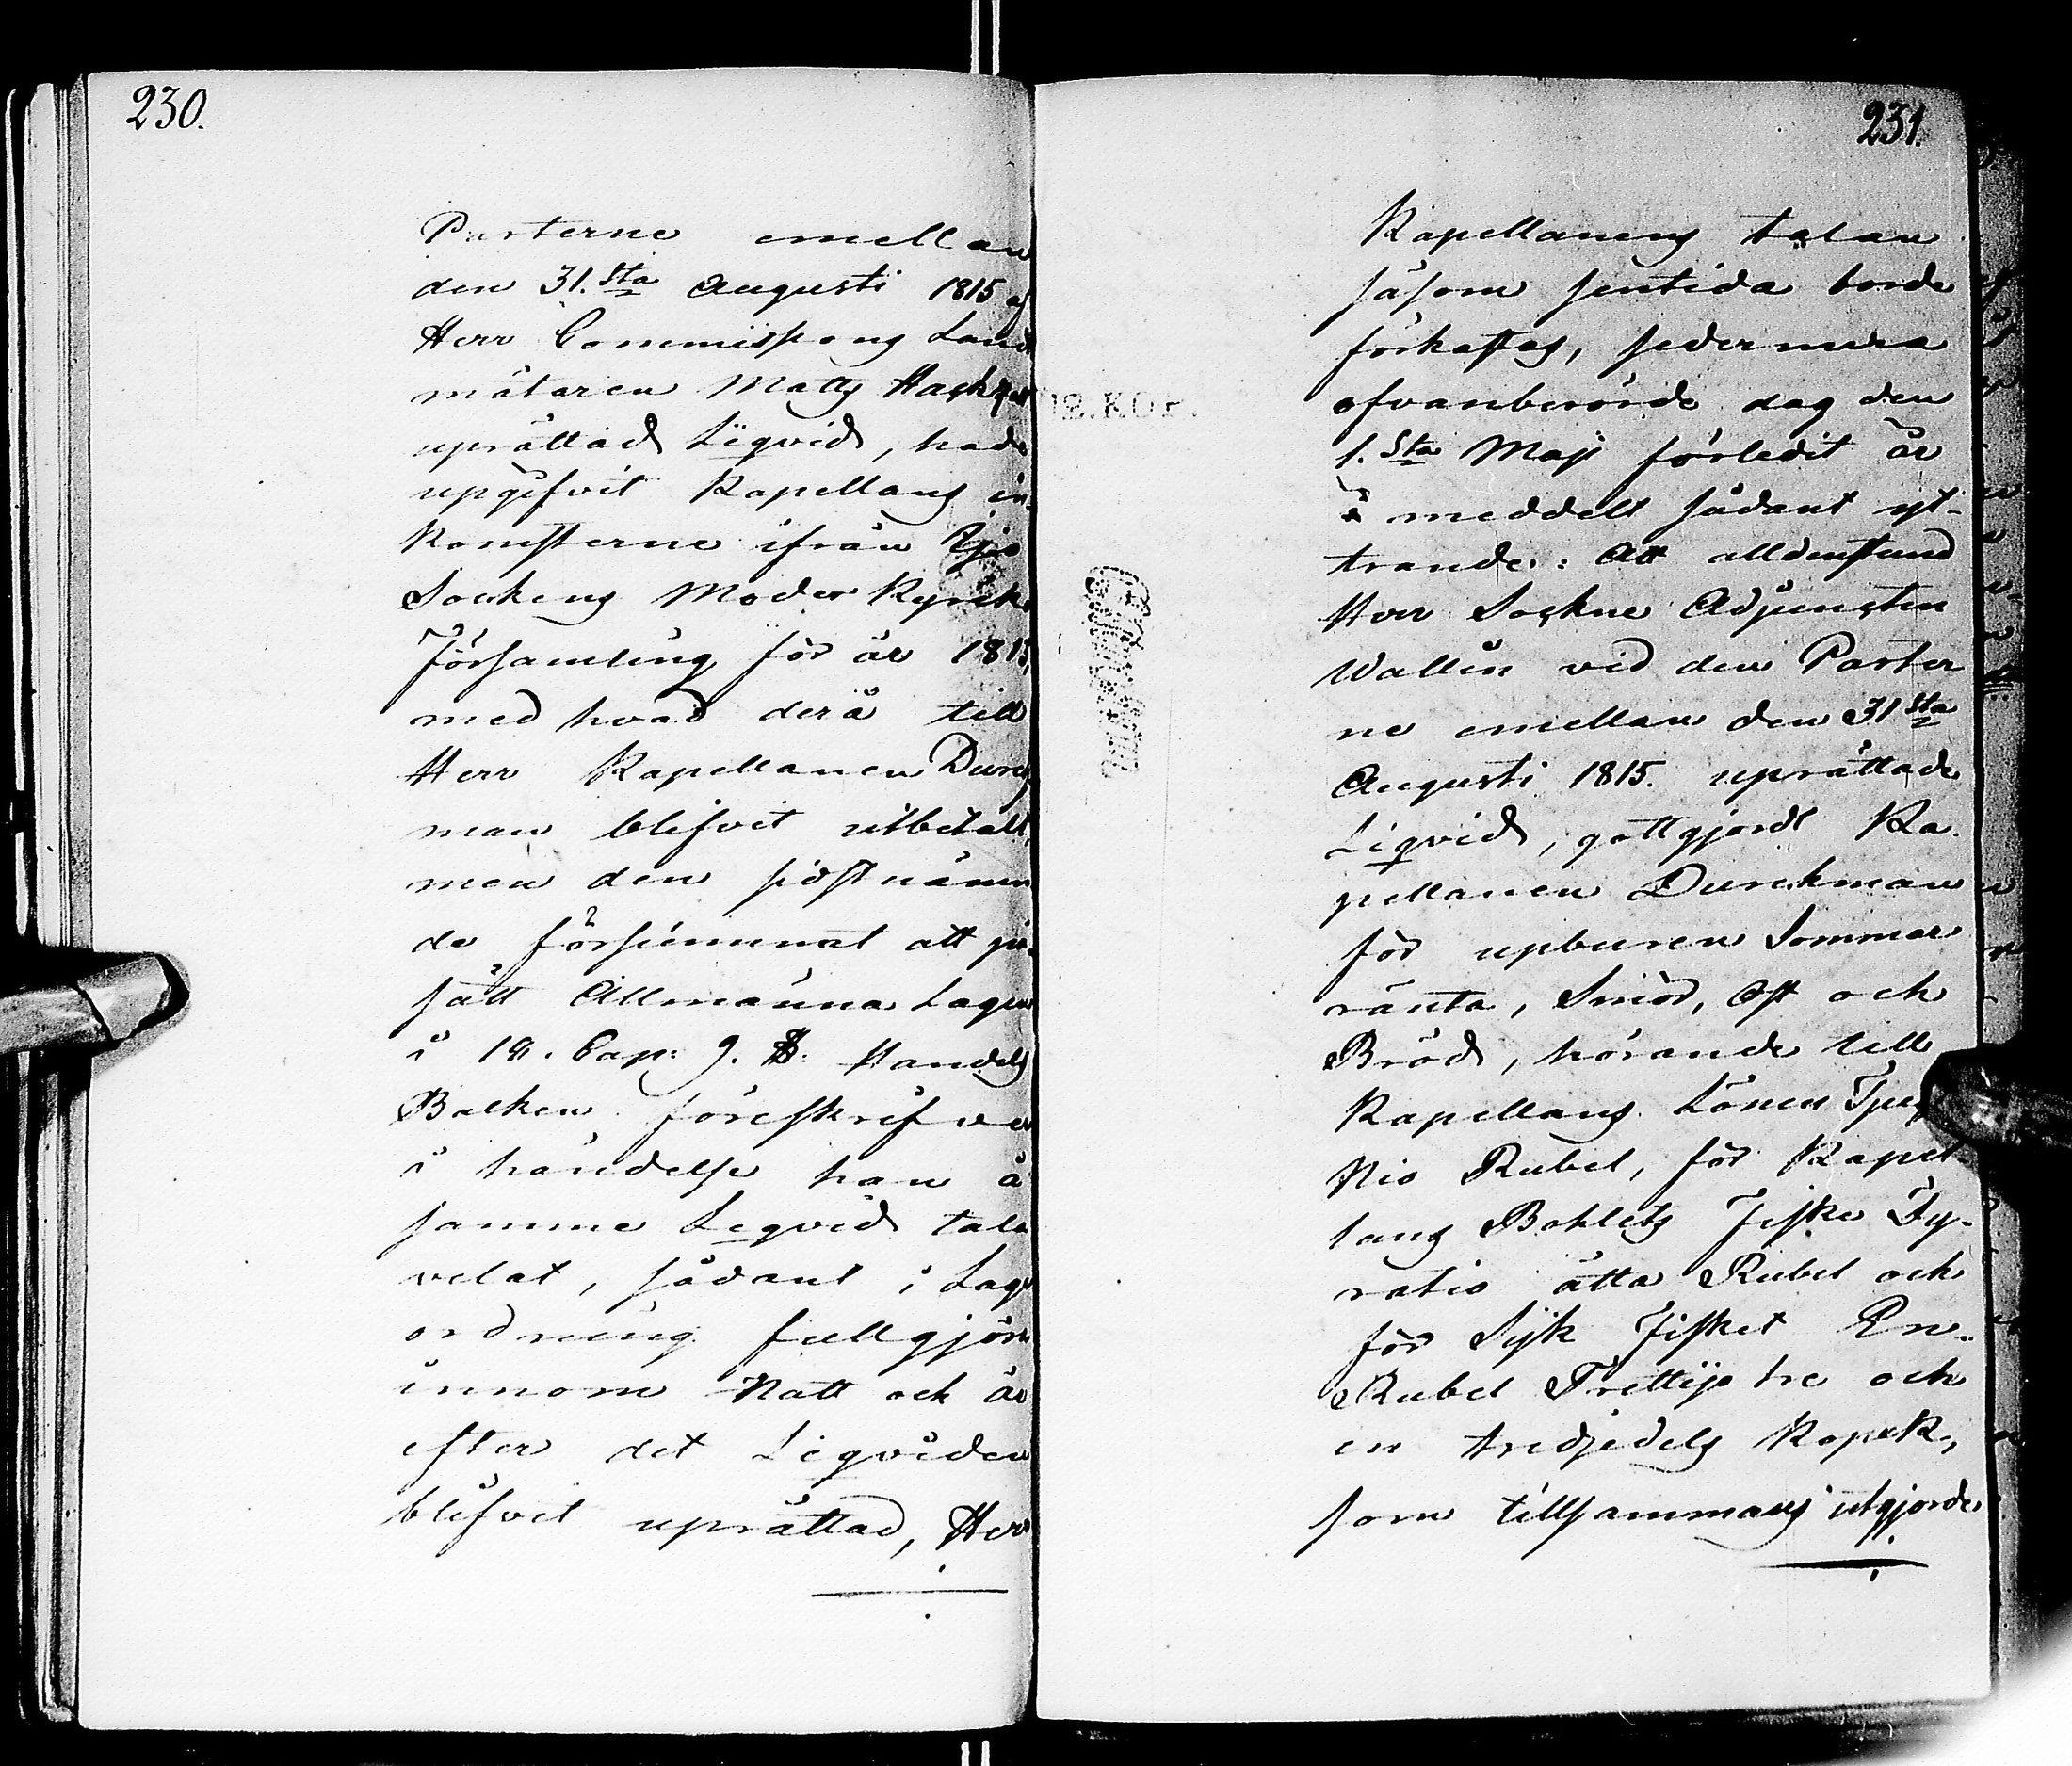 230.
Parterne emellan
den 31.sta Augusti 1815 af
Herr Commissions Land
mätaren Matts
uprättad Liqvid, hade
upgifvit Kapellans in-
komsterne ifrån Ijo
Sockens Moder Kyrko
Församling för år 1815,
med hvad derå till
Herr Kapellanen Durch
man blifvit utbetalt,
men den sistnämn
de försummat att på
sätt Allmänna Lagen
i 18. Cap: 9. §: Handels
Balken föreskrifver
i händelse han å
samme Liqvid tala
velat, sådant i Laga
ordning fullgjöra
innom Natt och år
efter det Liqviden
blifvit uprättad, Herr
231.
Kapellanens talan
såsom sentida borde
förkastas, sedermera
ofvanberörde dag den
1.sta Maji förledit år
meddelt sådant yt-
trande: Att alldenstund
Herr Sockne Adjuncten
Wallin vid den Parter
ne emellan den 31sta
Augusti 1815. uprättade
Liqvid, gottgjordt Ka-
pellanen Durchman
för upburen Sommar
ränta, Smör, Ost och
Bröd, hörande till
Kapellans Lönen
Nio Rubel, för Kapel-
lans Bohlets Fiske Fy-
ratio åtta Rubel och
för Sijk Fisket En
Rubel Trettijo tre och
en tredjedels Kopek,
som tillsammans utgjorde